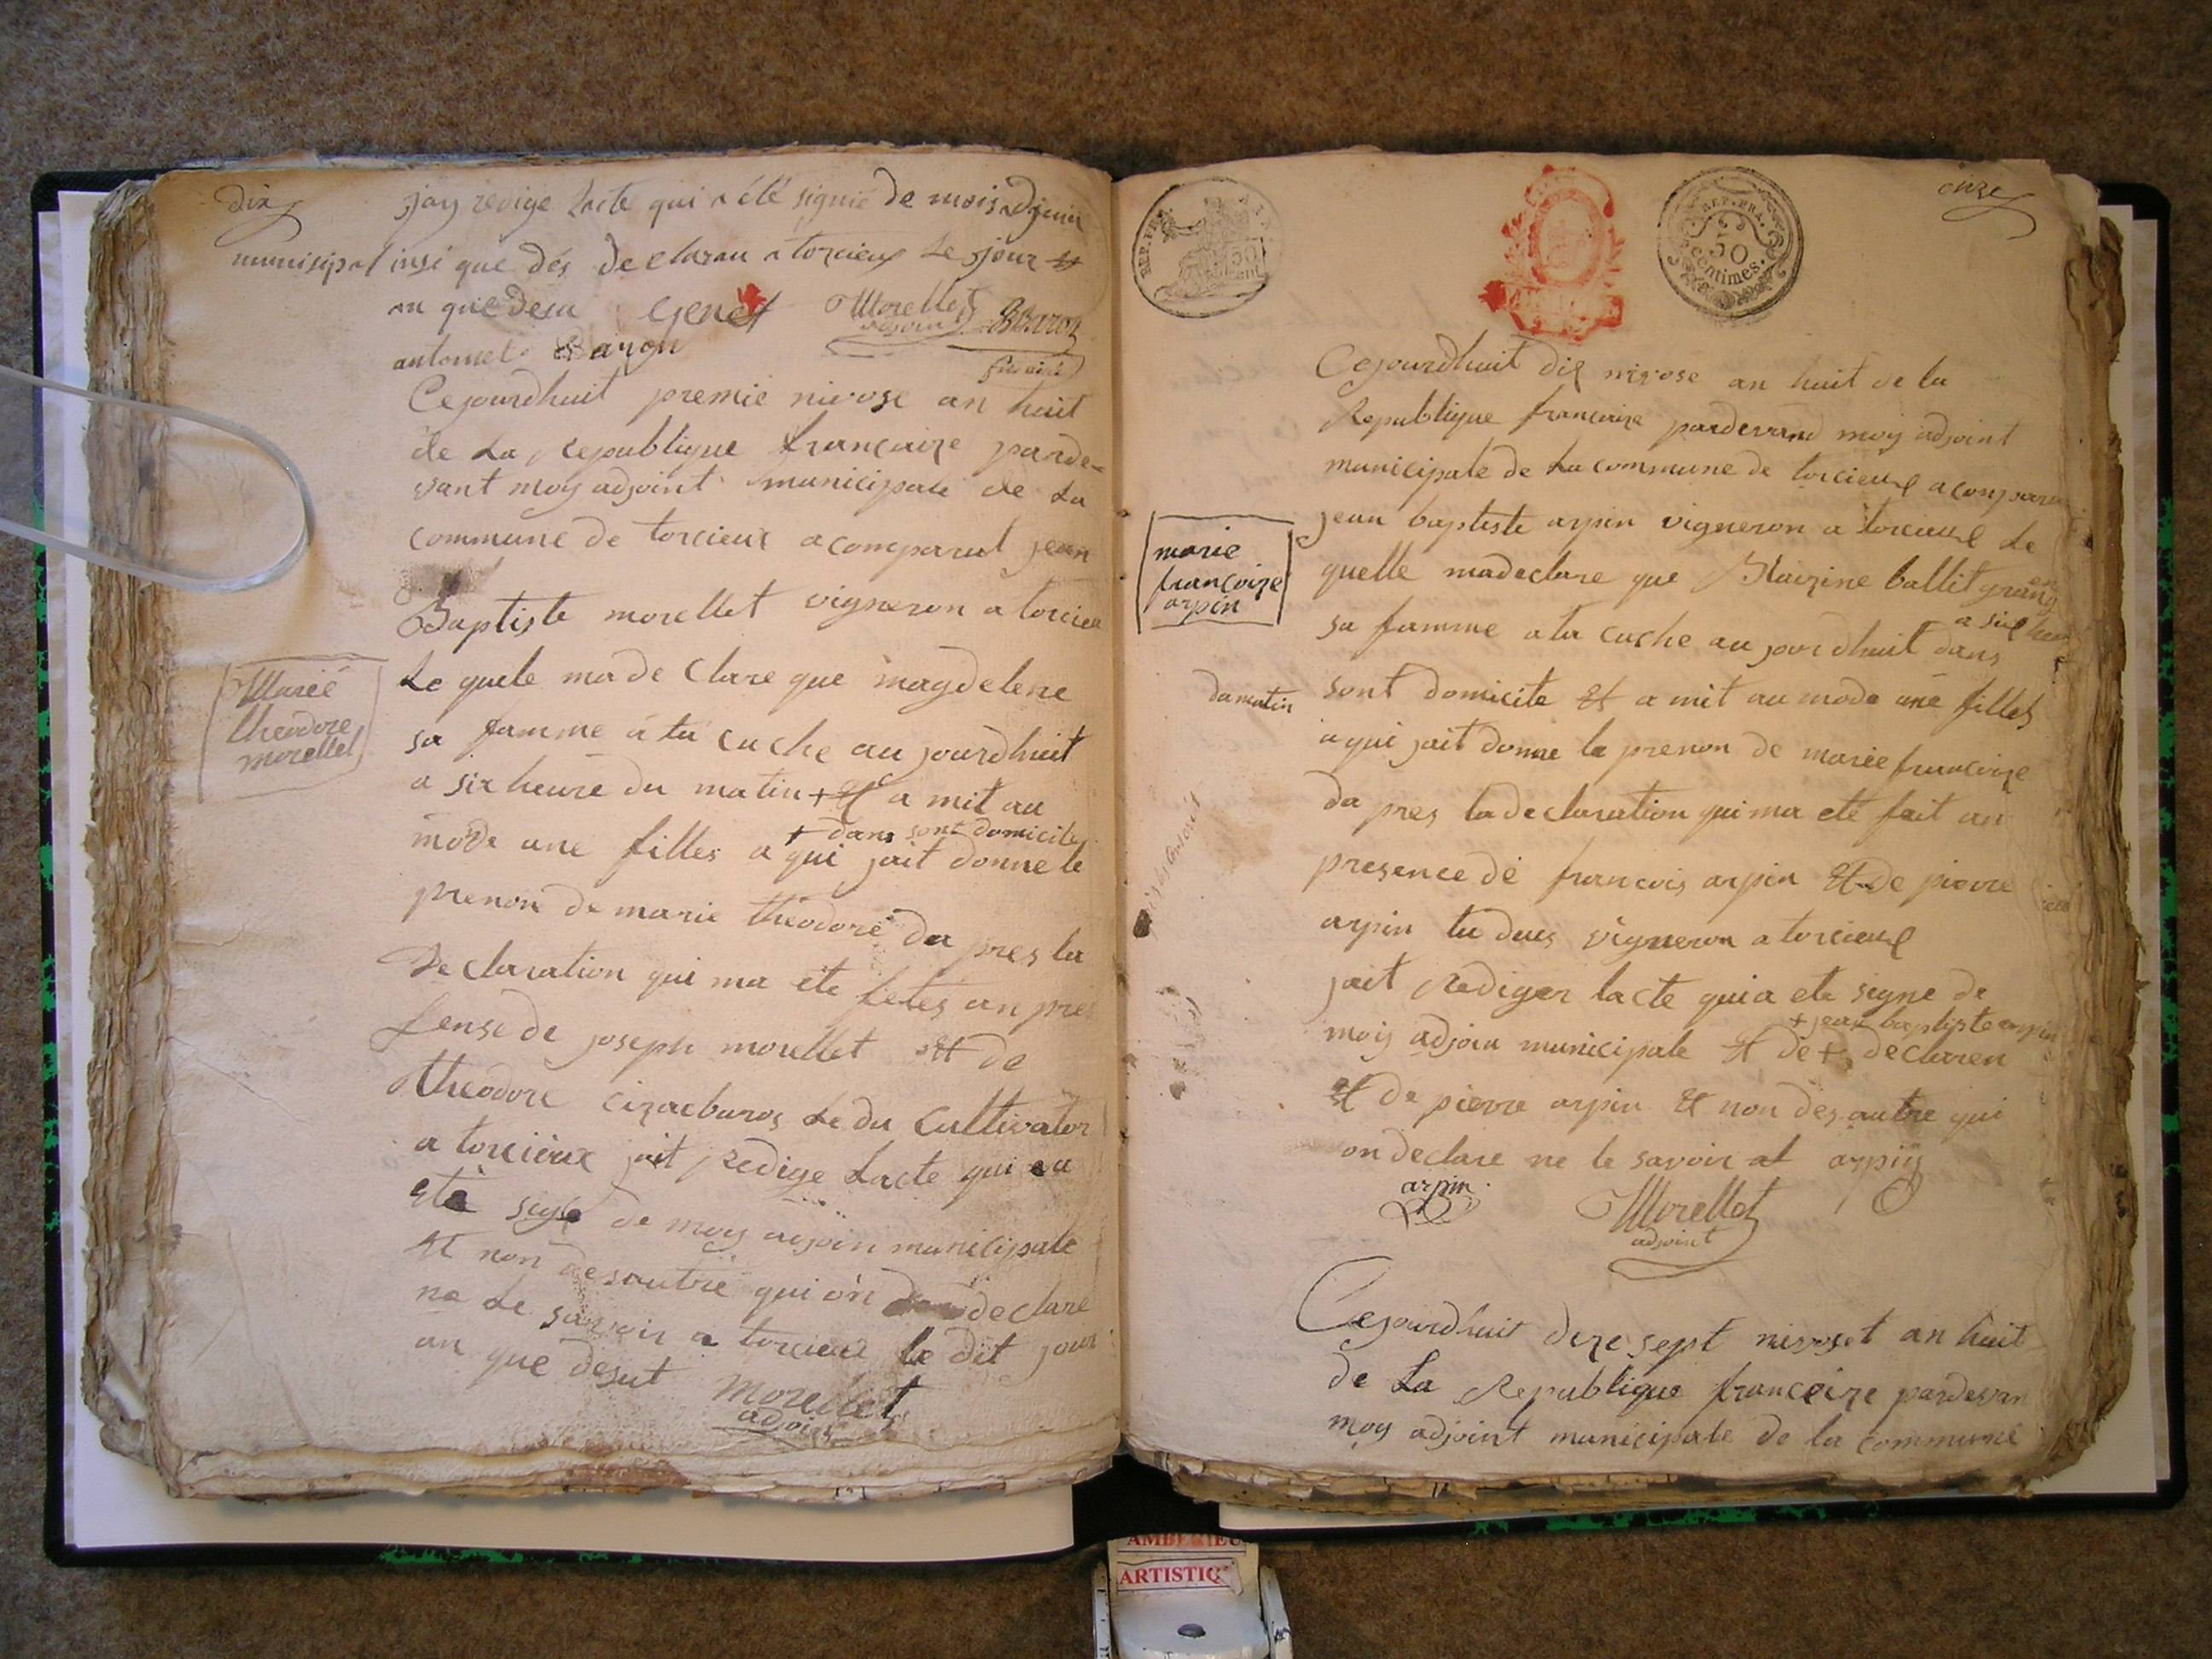 dix
jay redige lacte qui a été signié de mois adjoin
munisipal insi que dés declaran a torcieux le jour et
an que desu Genet Morellet adjoint B Baron
antoinet Baron fils ainé
Cejourdhuit premie nivose an huit
de La republique francaize parde=
vant moy adjoint municipale de La
commune de torcieux a comparut jean
Baptiste morellet vigneron a torcieu
Le quele ma de Clare que magdelene
sa famme a la cuche au jourdhuit
a six heure du matin + Et a mit au
+ dans sont domicile
mode une filles a qui jait donne le
prenon de marie theodore da pres la
Declaration qui ma ete fetes an pre
sense de joseph morellet Et de
theodore le du Cultivator
a torcieux jait Redige Lacte qui a
eté signe de moy adjoin municipale
Et non des autre qui on declare
ne Le savoir a torcieu le dit jour
an que desut
Morellet
adjoint
Marié
theodore
morellet
onze
REP. FRA.
50
REP. FRA.
50
centimes.
Cejourdhuit dix nivose an huit de la
Republique francaize pardevand moy adjoint
municipale de La commune de torcieux a comparu
jean baptiste arpin vigneron a torcieux Le
quelle madeclare que Blaizine ballit grang
a six heur
sa famme a la cuche au jourdhuit dans
du matin
sont domicile Et a mit au mode une filles
a qui jait donne le prenon de mariefrancoize
da pres la declaration qui ma eté fait an
presence de francois arpin Et de pierre
arpin tu deus vigneron a torcieux
jait Rediger lacte qui a ete signe de
+ jean baptiste arpin
moy adjoin municipale Et de + declaren
Et de pierre arpin Et non des autre qui
on declare ne le savoir arpin
arpin
Morellet
adjoint
marie
francoize
arpin
Cejourdhuit dize sept nivoset an huit
de La Republique francoize pardevan
moy adjoint municipale de la commune
AMBERIEU
ARTISTIQ